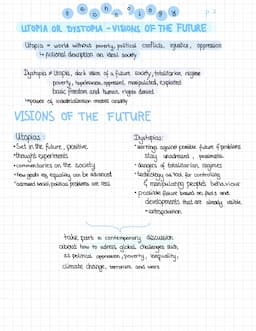 technology
p. 2
UTOPIA OR DYSTOPIA - VISIONS OF THE FUTURE
Utopia = world without poverty, political conflicts, injustice, oppression
↳ fictional description on ideal society
Dystopia ≠ Utopia, dark vision of a future society, totalitarian regime
hopelessness, oppressed, manipulated, exploited
basic freedom and human rights denied
power of
VISIONS OF THE FUTURE
Utopias:
• Set in the future, positive
• thought experiments
• commentaries on the society
• how goals eg. equality can be advanced
political problems are less
Dystopias:
• warnings against possible future if problems
stay unsolved, pessimistic
• dangers of totalitarian regimes
• technology as tool for controlling
& manipulating people's behaviour
• possible future based on fears and
developments that are already visible
• extrapolation
take part in contemporary discussion
about how to adress global challenges such
as political oppression, poverty, inequality,
climate change, terrorism and wars